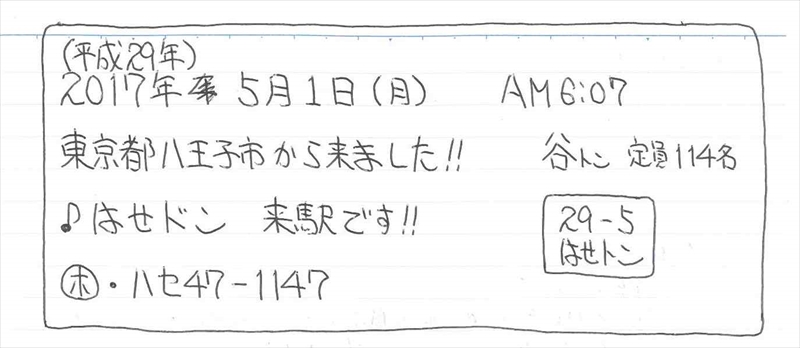 (平成29年)
2017年 5月1日(月) AM6:07
東京都八王子市から来ました!! 谷トン 定員114名
♪はせドン 来駅です!!
29-5
はせトン
㋭・ハセ47-1147